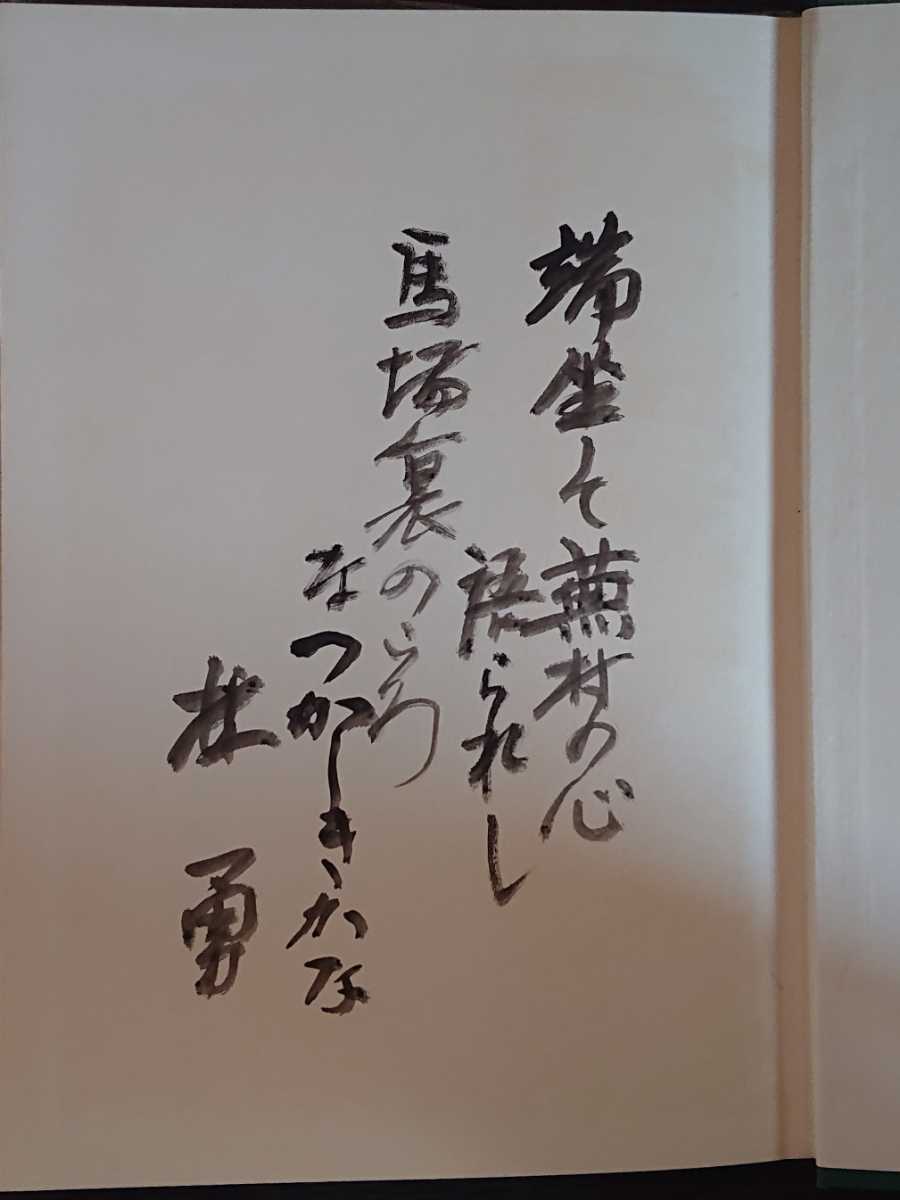 端坐して蕪村の心
語られし
馬場裏のころ
なつかしきかな
林勇